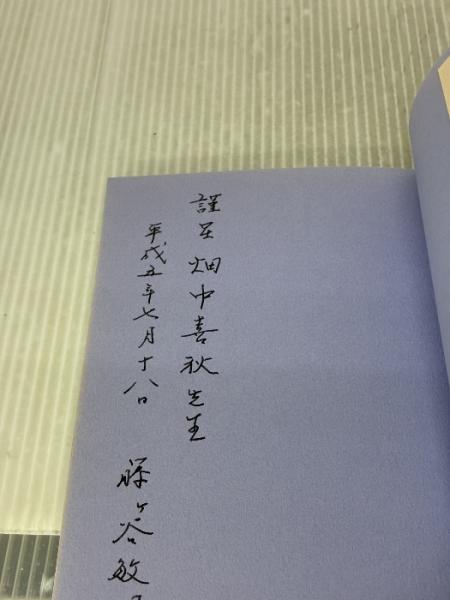 謹呈 畑中喜秋先生
平成五年七月十八日
藤ヶ谷敏